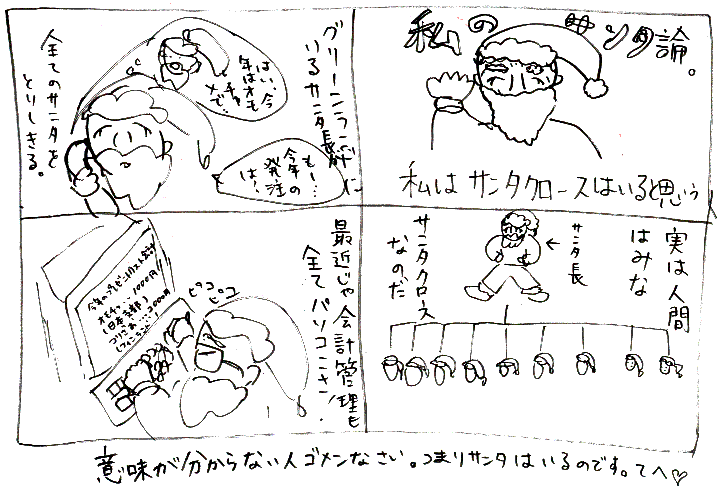 私のサンタ論。
私はサンタクロースはいると思う
実は人間
はみな
サンタ長
サンタクロース
なのだ
グリーンランドに
いるサンタ長
もし…
今年の
発注
は…
はい、今
年はオモ
チャ
メで…
全てのサンタを
とりしきる。
最近じゃ会計管理も
全てパソコンさ！
ピコピコ
1000円
(日本支部)
意味が分からない人ゴメンなさい。つまりサンタはいるのです。てへ♡